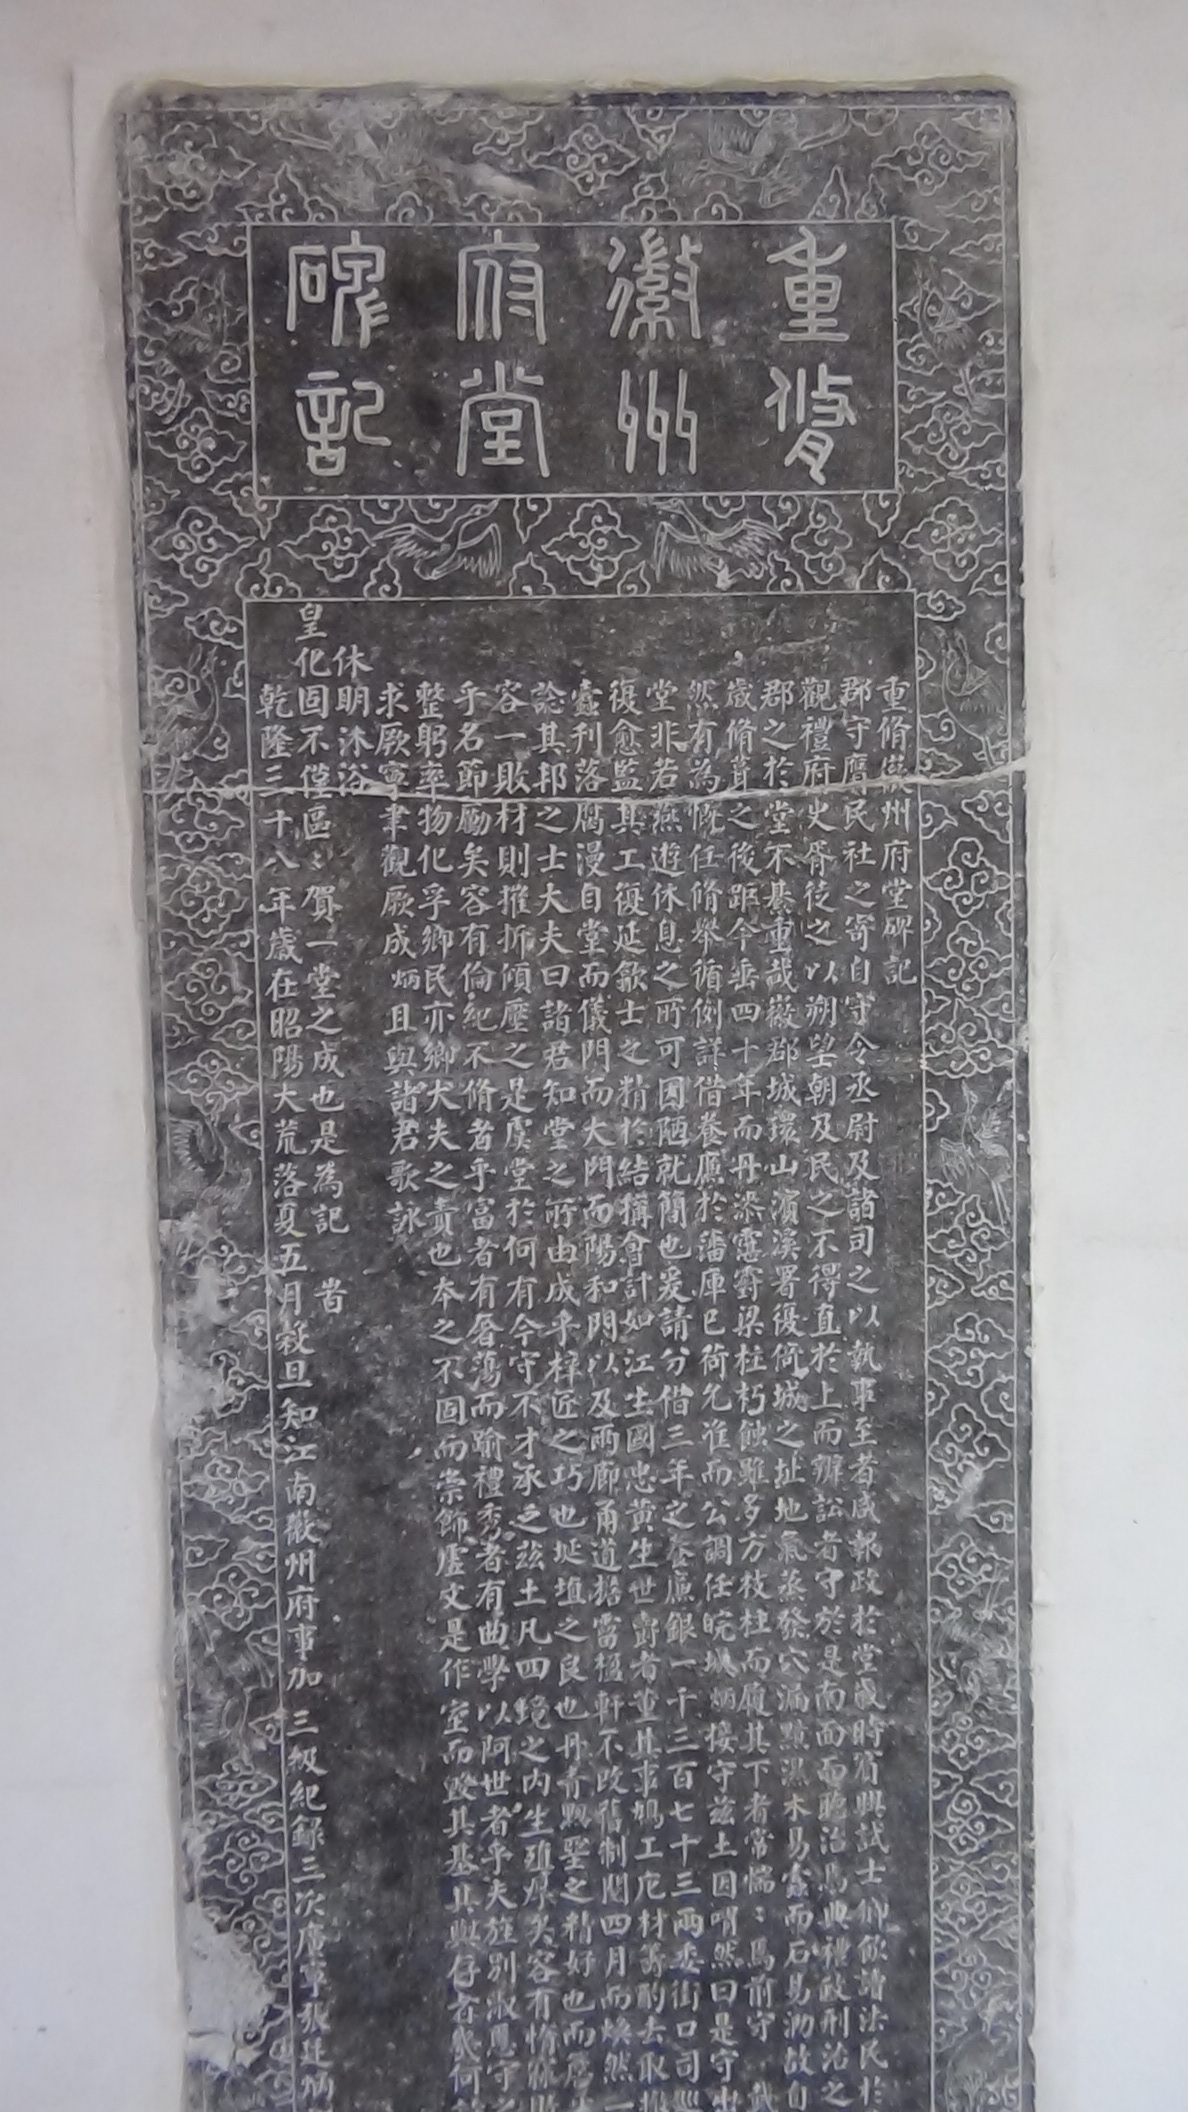 重脩
徽州
府堂
碑記
重脩徽州府堂碑記
郡守膺民社之寄自守令丞尉及諸司之以執事至者咸報政於堂歲時賓興試士鄉飲讀法民於
觀禮府史胥徒之以朔望朝及民之不得直於上而辦訟者守於是南面而聽治焉典禮政刑治之
郡之於堂不綦重哉徽郡城環山濱溪署復倚城之址地氣蒸發穴漏黦濕木易蠹而石易泐故自
歲脩葺之後距今垂四十年而丹漆霑霨梁柱朽蝕雖多方枝柱而履其下者常惴：焉前守
然有為慨任脩舉循例詳借養廉於藩庫已荷允准而公調任皖城炳接守茲土因喟然曰是守出
堂非若燕遊休息之所可因陋就簡也爰請分借三年之養廉銀一千三百七十三兩委街口司巡
復愈監其工復延歙士之精於結構會計如江生國黄生世爵者董其事鳩工庀材籌酌去取撤
蠧刊落腐漫自堂而儀門而大門而陽和門以及兩廊甬道楛霤楹軒不改舊制閱四月而煥然一
諗其邦之士大夫曰諸君知堂之所由成乎梓匠之巧也埏埴之良也丹青黝堊之精好也而
容一敗材則摧折傾壓之是虞堂於何有今守不才承之茲土凡四境之内生殖厚矣容有惰
乎名節勵矣容有倫紀不脩者乎富者有奢蕩而踰禮秀者有曲學以阿世者乎夫旌别淑慝守之
整躬率物化孚鄉民亦鄉大夫之責也本之不固而崇飾虛文是作室而毀其基其與存者幾何
求厥寧聿觀厥成炳且與諸君歌詠
休明沐浴
皇化固不僅區：賀一堂之成也是為記　　旹
乾隆三十八年歲在昭陽大荒落夏五月穀旦知江南徽州府事加三級紀錄三次廣寧張廷炳